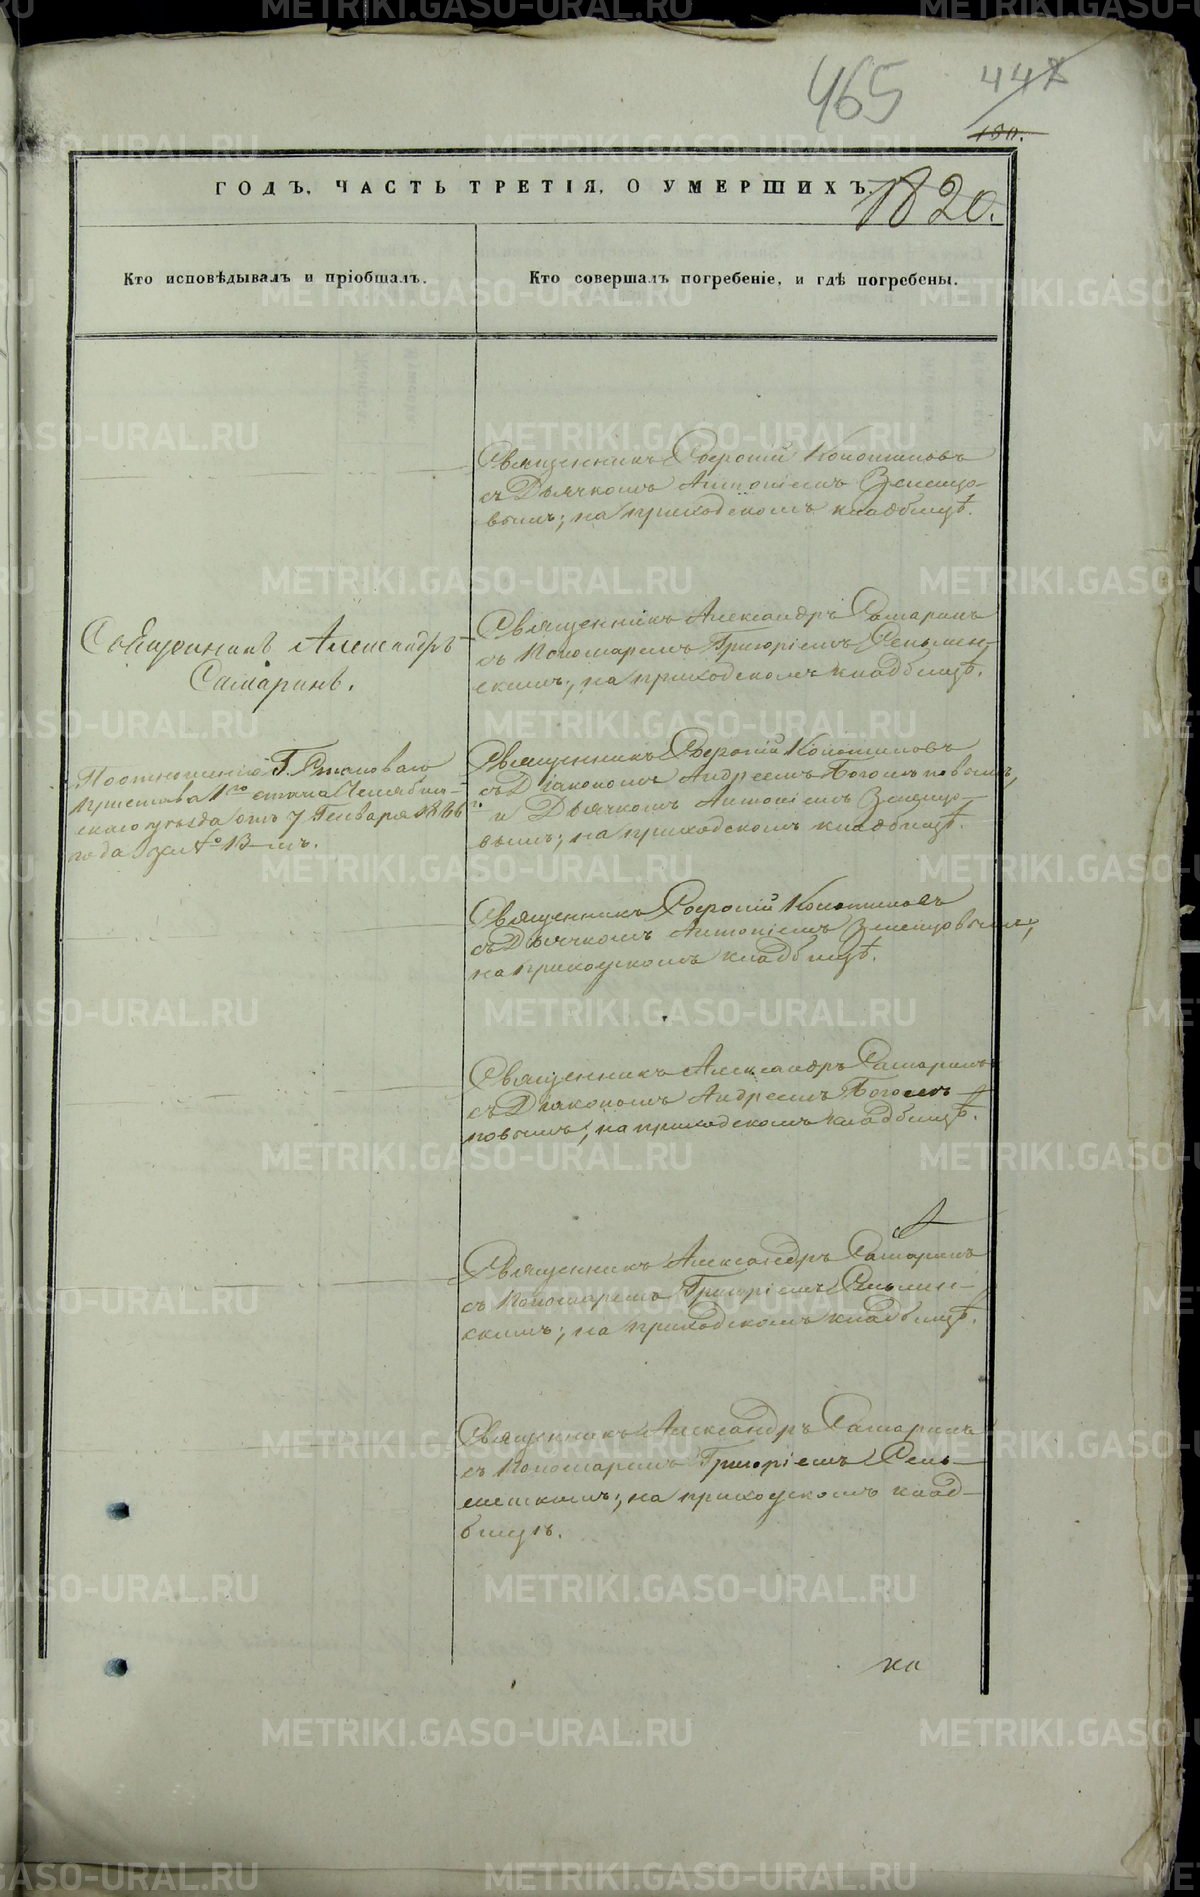 465 447
150.
ГОДЪ, ЧАСТЬ ТРЕТІЯ, О УМЕРШИХЪ. 1820.
Кто исповѣдывалъ и пріобщалъ.
Кто совершалъ погребеніе, и гдѣ погребены.
Священникъ Софроній
съ Дьячкомъ Антоніемъ Земляно-
вымъ; на приходскомъ кладбищѣ.
Священникъ Александръ
Самаринъ.
Священникъ Александръ Самаринъ
съ Пономаремъ Григоріемъ
скимъ; на приходскомъ кладбищѣ.
По отношенію Г. Становаго
Пристава 1го стана Челябин-
скаго уѣзда отъ 7 Генваря 1866
года за № 13-мъ.
Священникъ Софроній
съ Діакономъ Андреемъ Боголѣповымъ,
и Дьячкомъ Антоніемъ
вымъ; на приходскомъ кладбищѣ.
Священникъ Софроній
съ Дьячкомъ Антоніемъ
на приходскомъ кладбищѣ.
Священникъ Александръ Самаринъ
съ Діакономъ Андреемъ Боголѣ-
повымъ; на приходскомъ кладбищѣ.
Священникъ Александръ Самаринъ
съ Пономаремъ Григоріемъ
скимъ; на приходскомъ кладбищѣ.
Священникъ Александръ Самаринъ
съ Пономаремъ Григоріемъ
на приходскомъ клад-
бищѣ.
METRIKI.GASO-URAL.RU